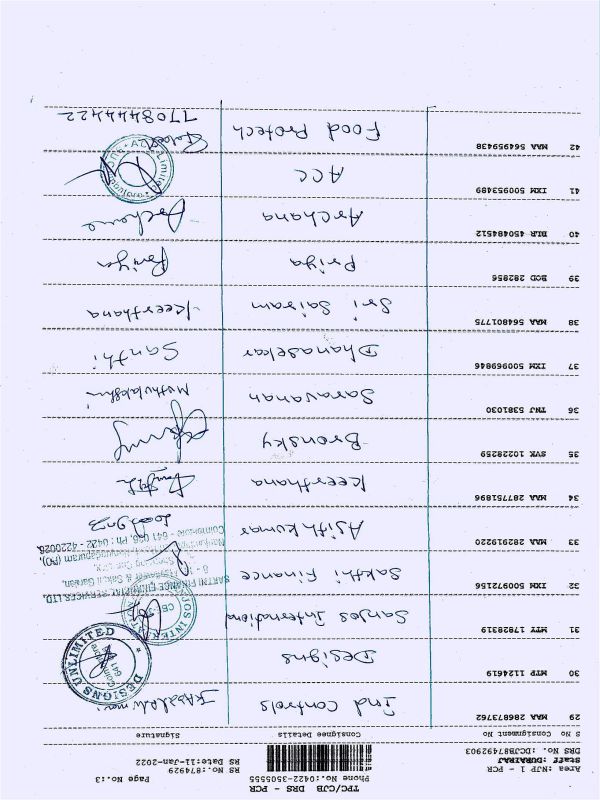 TPC/CJB DRS - PCR
Phone No.:0422-3505555
Area :NJP 1 - PCR RS No.:874929 Page No.:3
Staff :DURAIRAJ RS Date:11-Jan-2022
DRS No. :DCJB87492903
S No Consignment No Consignee Details Signature
29 MAA 286873762 Ind Controls
30 MTP 1124619 Designs
DESIGNS UNLIMITED
31 MTY 17828319 Sanjos Internationa
32 IXM 500972156 Sakthi Finance
SAKTHI FINANCIAL SERVICES LTD.
33 MAA 282919220 Ajith kumar
34 MAA 287751896 Keerthana
35 SVK 10228259 Bronsky
36 TNJ 5381030 Saravanan Muthulakshmi
37 IXM 500969846 Dhanasekar Santhi
38 MAA 564801775 Sri Sairam Keerthana
39 BCD 282856 Priya Priya
40 BLR 450484512 Archana Archana
41 IXM 500953489 ACC
ACC Limited
42 MAA 564959438 Food Protech
7708444422